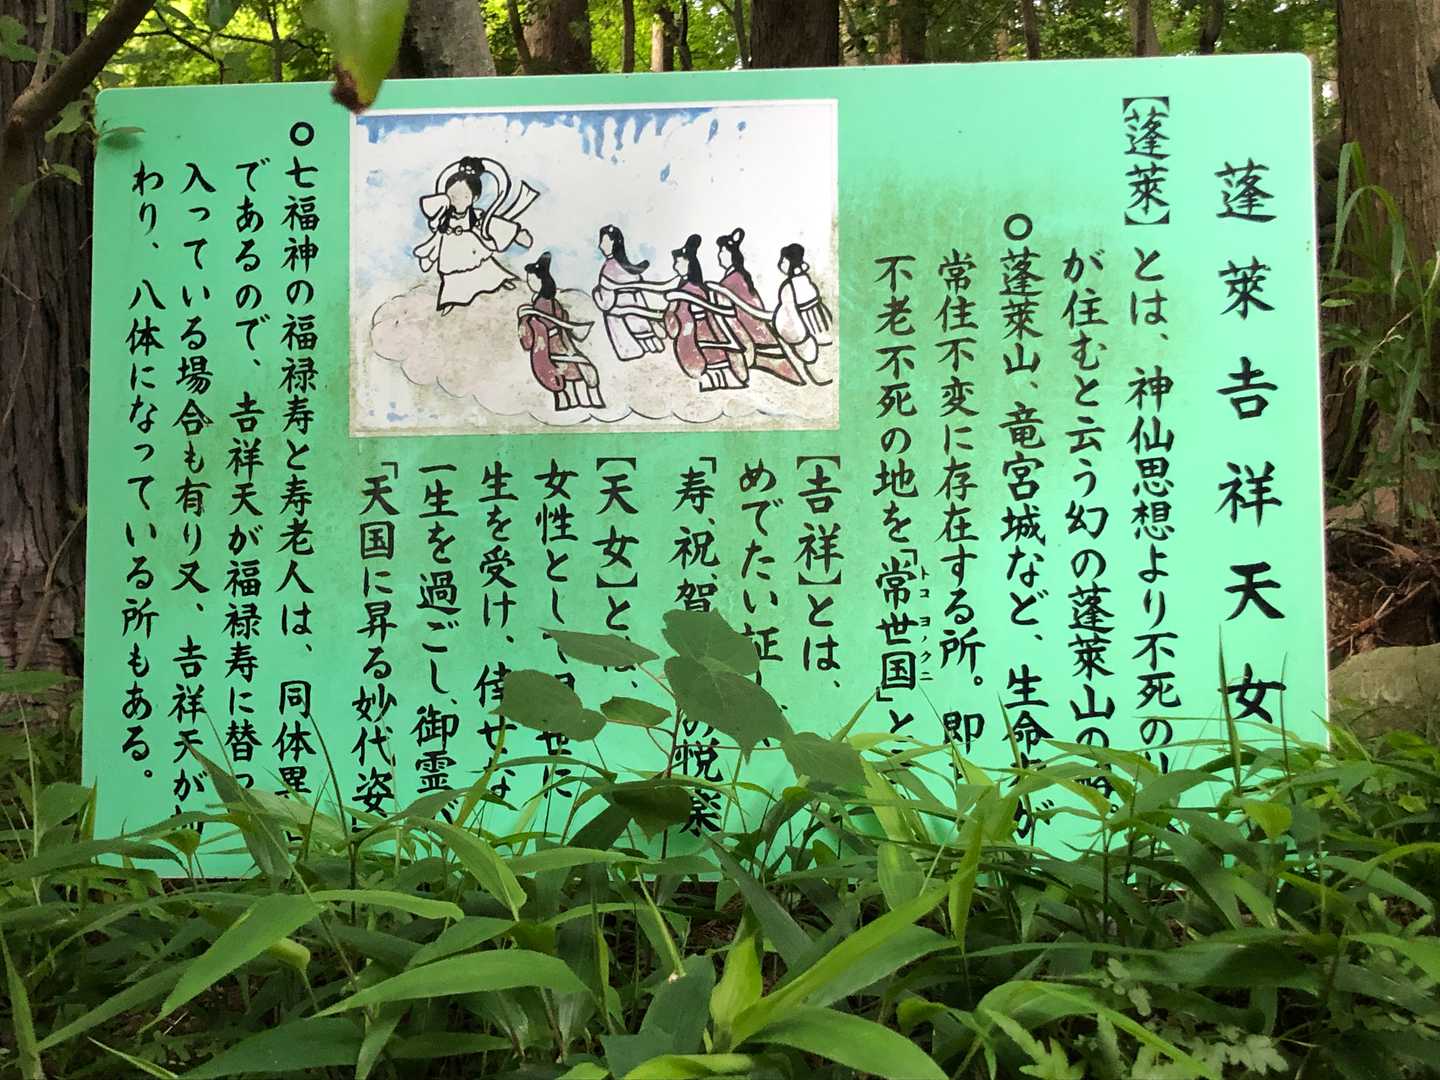 蓬萊吉祥天女
【蓬萊】とは、神仙思想より不死の
が住むと云う幻の蓬萊山の
○蓬萊山、竜宮城など、生命
常住不変に存在する所。即
不老不死の地を「常世国」と
トコヨノクニ
【吉祥】とは、
めでたい証
「寿、祝、賀の悦楽
【天女】とは、
女性として
生を受け、倖せな
一生を過ごし、御霊
「天国に昇る妙代姿
○七福神の福禄寿と寿老人は、同体異
であるので、吉祥天が福禄寿に替っ
入っている場合も有り又、吉祥天が
わり、八体になっている所もある。